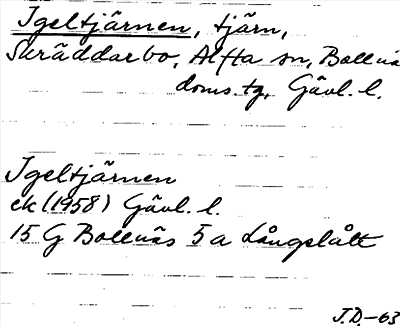 Igeltjärnen, tjärn,
Skräddarbo, Alfta sn, Bollnäs
doms.tg, Gävl. l.
Igeltjärnen
ek (1958) Gävl. l.
15 G Bollnäs 5 a Långslått
J.D.-63